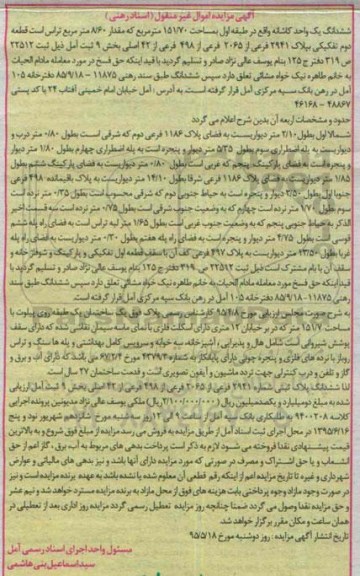 آگهی مزایده اموال غیر منقول (اسناد رهنی)
ششدانگ یک واحد کاشانه واقع در طبقه اول بمساحت ۱۵۱/۷۰ مترمربع که مقدار ۸/۶۰ متر مربع تراس است قطعه
دوم تفکیکی بپلاک ۲۹۴۱ فرعی از ۲۰۶۵ فرعی از ۴۹۸ فرعی از ۴۲ اصلی بخش ۹ ثبت آمل ذیل ثبت ۲۲۵۱۲
ص ۳۱۹ دفتر ج ۱۲۵ بنام یوسف عالی نژاد صادر و تسلیم گردید با قید اینکه حق فسخ در مورد معامله مادام الحیات
به خانم طاهره نیک خواه مشائی تعلق دارد سپس ششدانگ طبق سند رهنی ۱۱۸۷۵ – ۸۵/۹/۱۸ دفترخانه ۱۰۵
آمل در رهن بانک سپه مرکزی آمل قرار گرفته است. به آدرس : آمل خیابان امام خمینی آفتاب ۲۴ با کد پستی
۴۸۸۶۷ – ۴۶۱۶۸
حدود و مشخصات اربعه آن بدین شرح اعلام می گردد
شمالا اول بطول ۲/۱۰ متر دیواریست به فضای پلاک ۱۱۸۶ فرعی دوم که شرقی است بطول ۰/۸۰ متر درب و
دیواریست به پله اضطراری سوم بطول ۵/۳۵ متر دیوار و پنجره است به پله اضطراری چهارم بطول ۱/۸۰ متر دیوار
و پنجره است به فضای پارکینگ پنجم که غربی است بطول ۰/۸۰ متر دیواریست به فضای پارکینگ ششم بطول
۱/۸۵ متر دیواریست به فضای پلاک ۱۱۸۶ فرعی شرقا بطول ۱۴/۱۰ متر دیواریست به پلاک باقیمانده ۴۹۸ فرعی
جنوبا اول بطول ۲/۵۰ دیوار و پنجره است به حیاط جنوبی دوم که شرقی محسوب است بطول ۰/۳۵ متر نرده است
سوم بطول ۱/۷۰ متر نرده است چهارم که به وضعیت جنوب شرقی است بطول ۰/۷۵ متر نرده است سه قسمت اخیر
الذکر به حیاط جنوبی پنجم که به وضعیت جنوب غربی است بطول ۱/۶۵ متر لبه تراس است به فضای راه پله ششم
قوسی است بطول ۲/۷۵ متر دیوار و پنجره است به فضای راه پله هفتم بطول ۰/۳۰ متر دیواریست به فضای راه پله
غربا بطول ۱۳/۵۰ متر دیواریست به پلاک ۴۹۷ فرعی کف آن با سقف طبقه اول تفکیکی و پارکینگ و شوفاژخانه و
سقف آن با بام مشترک است ذیل ثبت ۲۲۵۱۲ ص ۳۱۹ دفتر ج ۱۲۵ بنام یوسف عالی نژاد صادر و تسلیم گردید با
قید اینکه حق فسخ مورد معامله مادام الحیات به خانم طاهره نیک خواه مشائی تعلق دارد سپس ششدانگ طبق سند
رهنی ۱۱۸۷۵-۸۵/۹/۱۸ دفترخانه ۱۰۵ آمل در رهن بانک سپه مرکزی آمل قرار گرفته است.
به شرح صورت مجلس ارزیابی مورخ ۹۵/۴/۸ کارشناس رسمی پلاک فوق یک ساختمان یک طبقه روی پیلوت با
مساحت ۱۵۱/۷ متر که در بر خیابان ۱۲ متری دارای اسکلت فلزی با نمای ماسه سیمان نقاشی شده که دارای سقف
پوشش شیروانی است شامل هال و پذیرایی، آشپزخانه، سه خوابه و سرویس کامل بهداشتی و پله ها سنگ و تراس
روباز با نرده های فلزی و پنجره چوبی دارای پایانکار به شماره ۴۳۷۹/۴ مورخ ۶۷/۲/۴ می باشد که دارای آب و برق و
گاز و تلفن و درب کنترلی جهت تردد ماشین و آیفون تصویری است و قدمت ساختمان ۲۷ سال است
لذا ششدانگ پلاک ثبتی شماره ۲۹۴۱ فرعی از ۲۰۶۵ فرعی از ۴۹۸ فرعی از ۴۲ اصلی بخش ۹ ثبت آمل ارزیابی
شده به مبلغ دو میلیارد و یکصد میلیون ریال (۲/۱۰۰/۰۰۰/۰۰۰ ریال) ملکی یوسف عالی نژاد مدیونین پرونده اجرایی
کلاسه ۹۴۰۰۲۰۸ به طلبکاری بانک سپه آمل از ساعت ۹ الی ۱۲ روز سه شنبه مورخ شانزدهم شهریور نود و پنج
۱۳۹۵/۶/۱۶ در محل اجرای ثبت اسناد آمل از طریق مزایده به فروش می رسد مزایده از مبلغ فوق شروع و به بالاترین
قیمت پیشنهادی نقدا فروخته می شود لازم به ذکر است پرداخت بدهی های مربوط به آب برق ، گاز اعم از حق
انشعاب و یا حق اشتراک و مصرف در صورتی که مورد مزایده دارای آنها باشد و نیز بدهی های مالیاتی و عوارض
شهرداری و غیره تا تاریخ مزایده اعم از اینکه رقم قطعی آن معلوم شده یا نشده باشد به عهده برنده مزایده است و نیز
در صورت وجود مازاد وجوه پرداختی بابت هزینه های فوق از محل مازاد به برنده مزایده مسترد خواهد شد و نیم عشر
و حق مزایده نقدا وصول می گردد ضمنا چنانچه روز مزایده تعطیل رسمی گردد مزایده روز اداری بعد از تعطیلی در
همان ساعت و مکان مقرر برگزار خواهد شد.
تاریخ انتشار آگهی مزایده : روز دوشنبه مورخ ۹۵/۵/۱۸
مسئول واحد اجرای اسناد رسمی آمل
سید اسماعیل بنی هاشمی